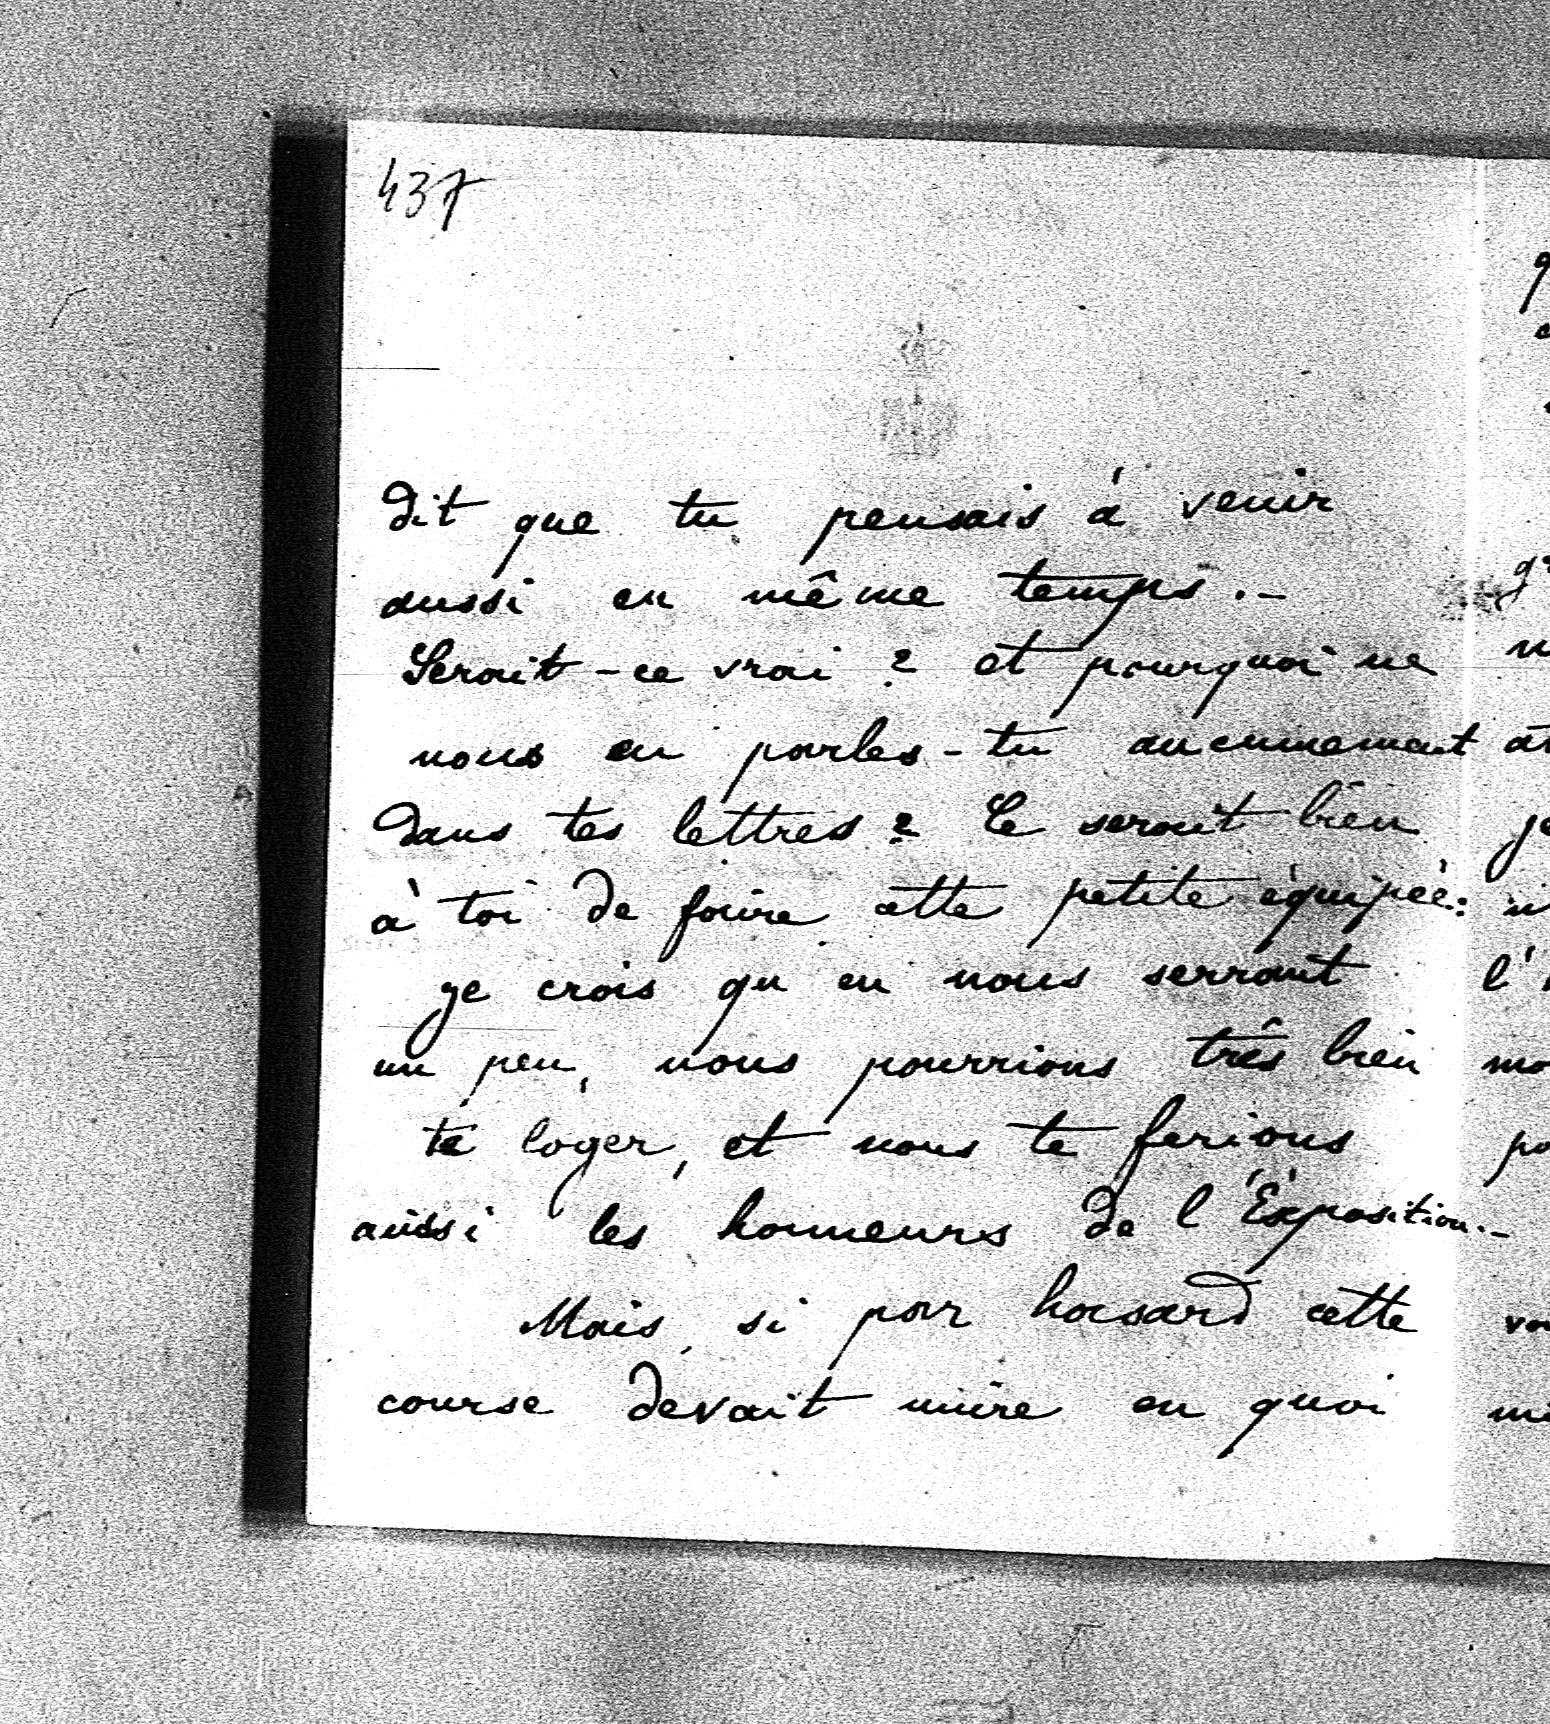 437
dit que tu pensais à venir
aussi en même temps.-
Serait-ce vrai ? et pourquoi ne
nous en parles-tu aucunement
dans tes lettres ? Ce serait bien
à toi de faire cette petite équipée:
je crois qu'en nous serrant
un peu, nous pourrions très bien
te loger, et nous te ferions
aussi les honneurs de l'Exposition.-
Mais si par hasard cette
course devait nuire en quoi